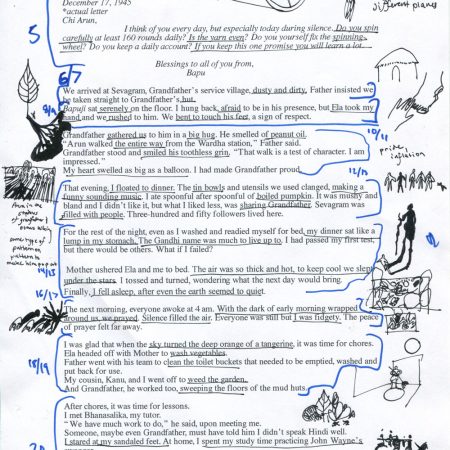 different planes
December 17, 1945
*actual letter
Chi Arun,
5
I think of you every day, but especially today during silence. Do you spin
carefully at least 160 rounds daily? Is the yarn even? Do you yourself fix the spinning
wheel? Do you keep a daily account? If you keep this one promise you will learn a lot.
Blessings to all of you from,
Bapu
6/7
We arrived at Sevagram, Grandfather's service village, dusty and dirty, Father insisted we
be taken straight to Grandfather's hut.
8/9
Bapuji sat serenely on the floor. I hung back, afraid to be in his presence, but Ela took my
hand and we rushed to him. We bent to touch his feet, a sign of respect.
10/11
Grandfather gathered us to him in a big hug. He smelled of peanut oil.
"Arun walked the entire way from the Wardha station," Father said.
Grandfather stood and smiled his toothless grin. "That walk is a test of character. I am
impressed."
My heart swelled as big as a balloon. I had made Grandfather proud.
12/13
That evening, I floated to dinner. The tin bowls and utensils we used clanged, making a
funny sounding music. I ate spoonful after spoonful of boiled pumpkin. It was mushy and
bland and I didn't like it, but what I liked less, was sharing Grandfather. Sevagram was
filled with people. Three-hundred and fifty followers lived here.
For the rest of the night, even as I washed and readied myself for bed, my dinner sat like a
lump in my stomach. The Gandhi name was much to live up to. I had passed my first test,
but there would be others. What if I failed?
14/15
Mother ushered Ela and me to bed. The air was so thick and hot, to keep cool we slept
under the stars. I tossed and turned, wondering what the next day would bring.
16/17
Finally, I fell asleep, after even the earth seemed to quiet.
The next morning, everyone awoke at 4 am. With the dark of early morning wrapped
around us, we prayed. Silence filled the air. Everyone was still but I was fidgety. The peace
of prayer felt far away.
18/19
I was glad that when the sky turned the deep orange of a tangerine, it was time for chores.
Ela headed off with Mother to wash vegetables.
Father went with his team to clean the toilet buckets that needed to be emptied, washed and
put back for use.
My cousin, Kanu, and I went off to weed the garden.
And Grandfather, he worked too, sweeping the floors of the mud huts.
After chores, it was time for lessons.
I met Bhanasalika, my tutor.
"We have much work to do," he said, upon meeting me.
Someone, maybe even Grandfather, must have told him I didn't speak Hindi well.
20
I stared at my sandaled feet. At home, I spent my study time practicing John Wayne's